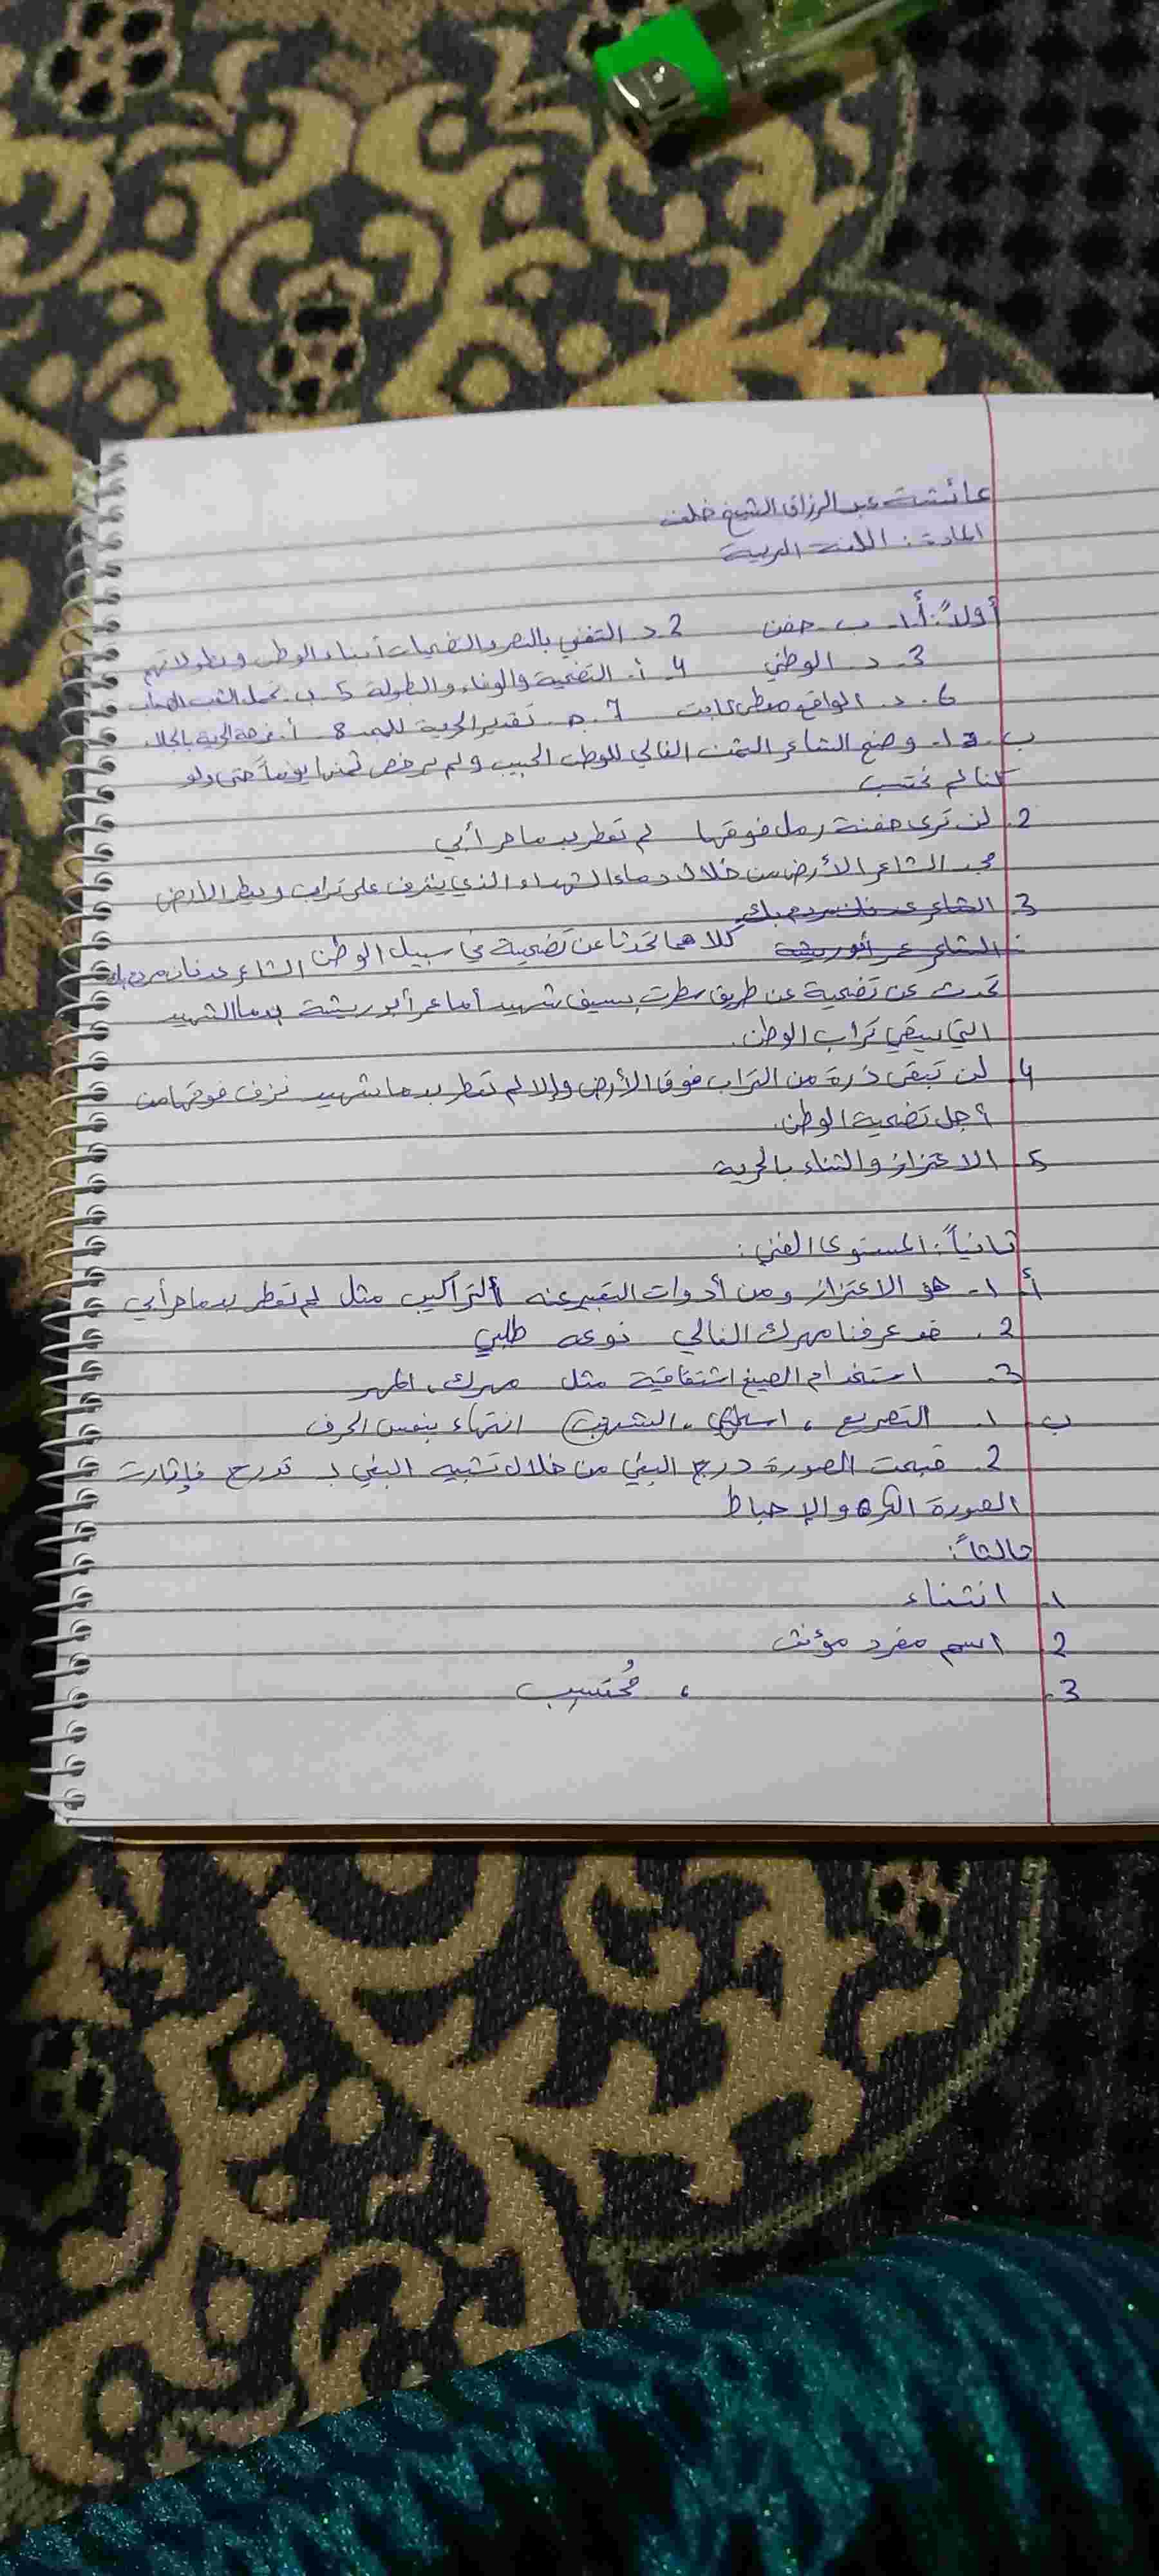 عائشة عبد الرزاق الشيخ خلف
المادة: اللغة العربية
أولاً: أ. 1. ب. جفن 2. د. التغني بالنصر والتضحيات أبناء الوطن وبطولاتهم
3. د. الوطني 4. أ. التضحية والوفاء والبطولة 5. ب. تحمل الشعب
6. د. الواقع 7. ج. تقدير الحرية 8. أ. فرحة الحرية بالجلاء
ب. 1. وضح الشاعر الثمن الغالي للوطن الحبيب ولم يرخص ثمنها يوماً حتى ولو
كنا لم نحتسب
2. لن ترى حفنة رمل فوقها لم تعطر بدما حر أبي
مجد الشاعر الأرض من خلال دماء الشهداء الذي ينزف على تراب ويعطر الأرض
3. الشاعر عدنان مردم بك
الشاعر عمر أبو ريشة كلاهما تحدثا عن تضحية في سبيل الوطن الشاعر عدنان مردم بك
تحدث عن تضحية عن طريق سطرت بسيف شهيد أما عمر أبو ريشة بدما الشهيد
التي سيقي تراب الوطن.
4. لن تبقى ذرة من التراب فوق الأرض وإلا لم تعطر بدما شهيد نزف فوقها من
أجل تضحية الوطن.
5. الاعتزاز والثناء بالحرية
ثانياً: المستوى الفني:
أ. 1. هو الاعتزاز ومن أدوات التعبير عنه التراكيب مثل لم تعطر بدما حر أبي
2. قد عرفنا مهرك الغالي نوعه طلبي
3. استخدام الصيغ اشتقاقية مثل مهرك، المهر
ب. 1. التصريع، اسلبي، الشهب انتهاء بنفس الحرف
2. قبحت الصورة درج البغي من خلال تشبيه البغي بـ تدرج فإثارت
الصورة الكره والإحباط
ثالثاً:
1. انتشاء
2. اسم مفرد مؤنث
3. ، مُحتسِب